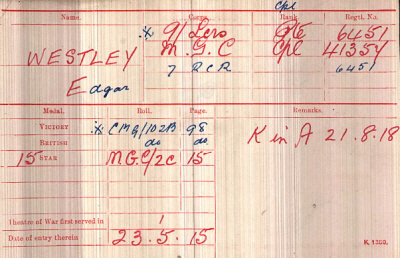 Name. Corps. Rank. Regtl. No.
Cpl
WESTLEY * 9/Lers Pte 6451
M.G.C Cpl 41354
Edgar 7 RCR 6451
Medal. Roll. Page. Remarks.
VICTORY * CMG/102B 98
BRITISH do do K in A 21.8.18
15 STAR M.G.C/2C 15
Theatre of War first served in 1
Date of entry therein 23.5.15
K. 1380.